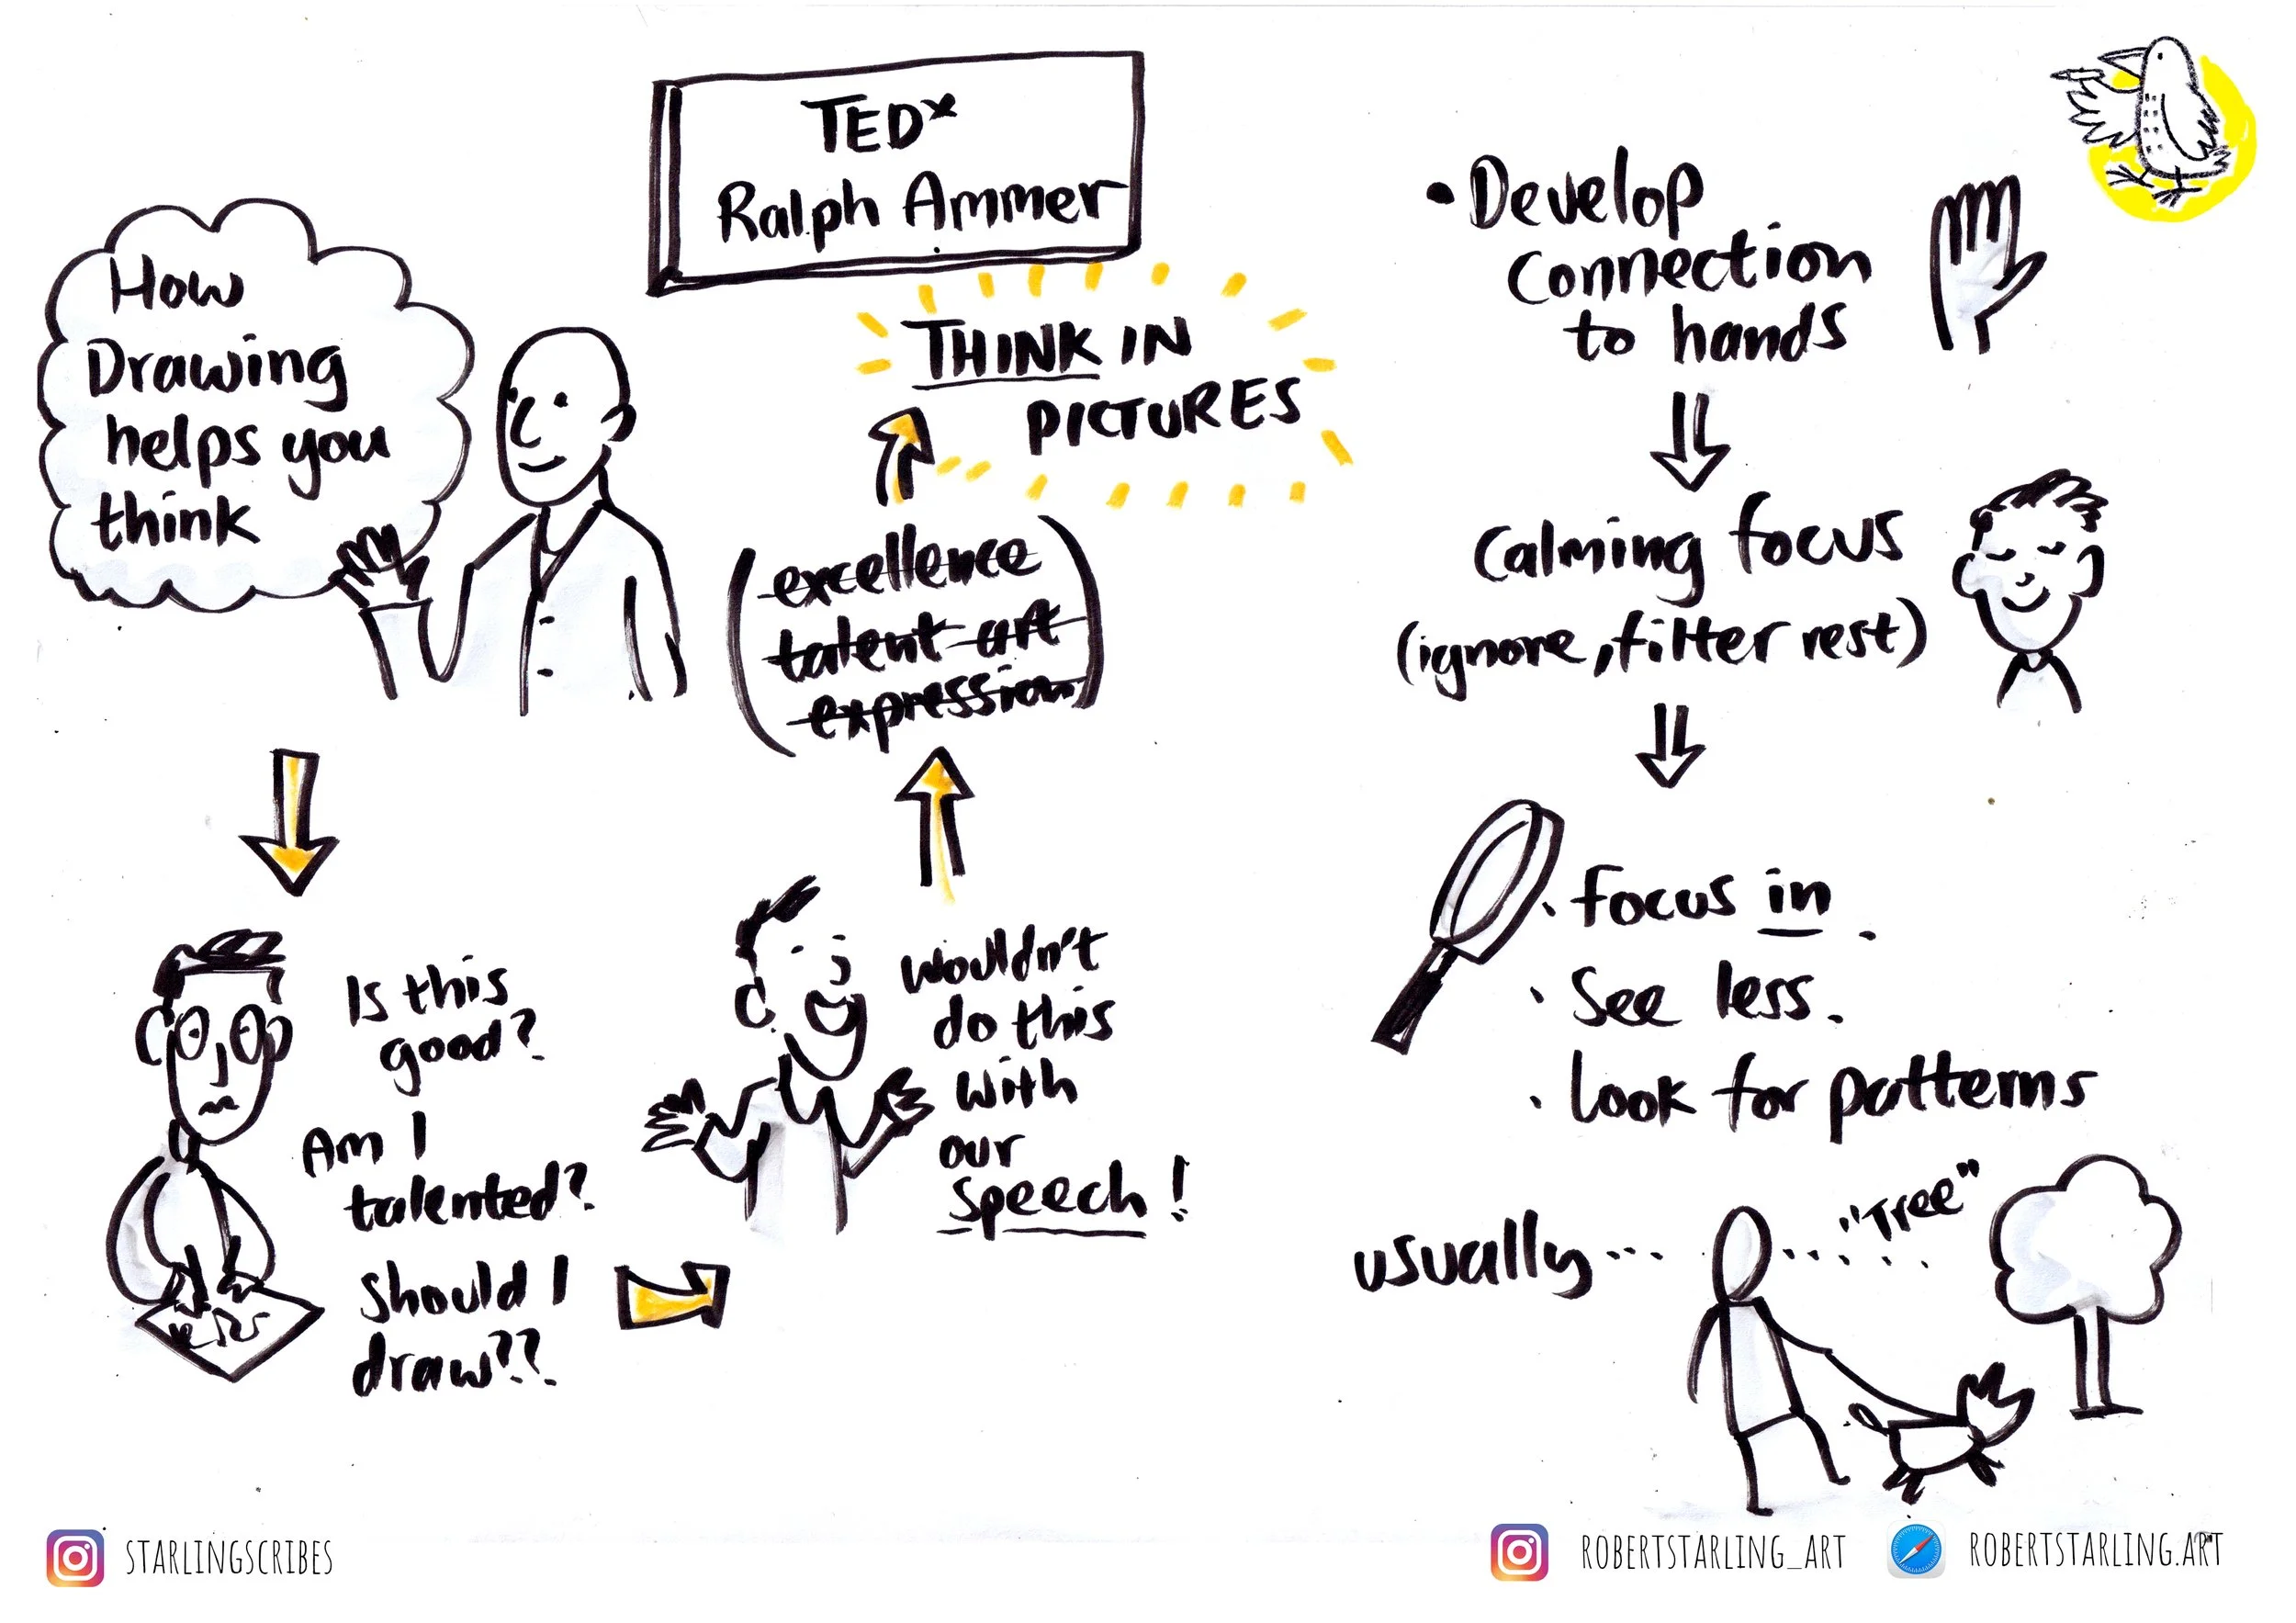 TEDx
Ralph Ammer
How
Drawing
helps you
think
Is this
good?
Am I
talented?
Should I
draw??
Wouldn't
do this
with
our
speech!
excellence
talent art
expression
THINK IN
PICTURES
• Develop
connection
to hands
Calming focus
(ignore, filter rest)
• Focus in.
• See less.
• Look for patterns
usually... ...... "Tree"
STARLINGSCRIBES
ROBERTSTARLING_ART
ROBERTSTARLING.ART